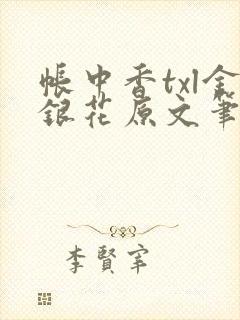 帳中香txl金
銀花原文筆
李賢宰